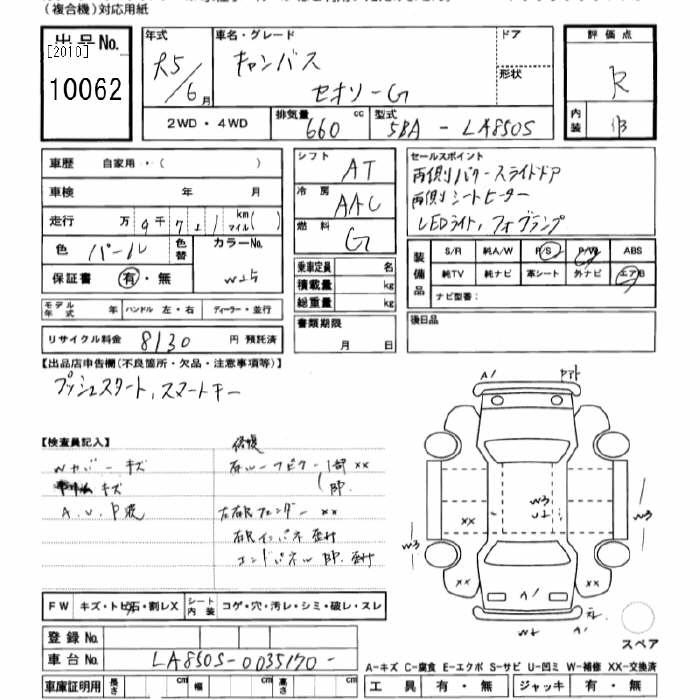 (複合機)対応用紙
出品No.
[2010]
10062
年式
R5/6月
車名・グレード
キャンバス
セオリーG
ドア
形状
評価点
R
内装
B
2WD・4WD
排気量
660 cc
型式
5BA - LA850S
車歴 自家用・( )
車検 年 月
走行 万9千7百1 km マイル( )
色 パール
色替
カラーNo.
W25
保証書 有・無
モデル年式 年 ハンドル 左・右 ディーラー・並行
リサイクル料金 8130 円 預託済
シフト AT
冷房 AAC
燃料 G
乗車定員 名
積載量 kg
総重量 kg
書類期限
月 日
セールスポイント
両側パワースライドドア
両側シートヒーター
LEDライト、フォグランプ
装備品
S/R 純A/W P/S P/W ABS
純TV 純ナビ 革シート 外ナビ エアB
ナビ型番:
後日品
【出品店申告欄(不良箇所・欠品・注意事項等)】
プッシュスタート、スマートキー
【検査員記入】
修復
Wカバーキズ
キズ
右ルーフピラー1部 xx
左右Rフェンダー xx
右Rインパネ
エンドパネル
A1
W3
W3
W2
xx
W3
W3
xx
xx
A1
W2
スペア
FW キズ・トビ石・割レX
シート内装 コゲ・穴・汚レ・シミ・破レ・スレ
登録No.
車台No. LA850S-0035170-
車庫証明用 長さ cm 幅 cm 高さ cm
A-キズ C-腐食 E-エクボ S-サビ U-凹ミ W-補修 XX-交換済
工具 有・無 ジャッキ 有・無